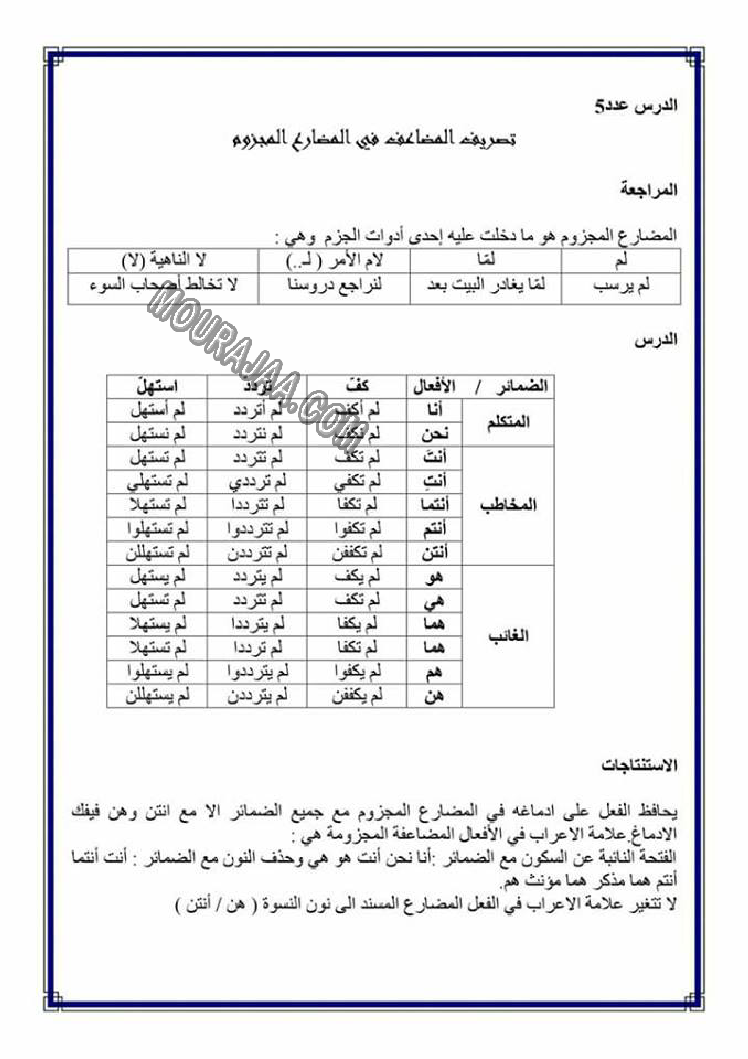 الدرس عدد5
تصريف المضاعف في المضارع المجزوم
المراجعة
المضارع المجزوم هو ما دخلت عليه إحدى أدوات الجزم وهي :
لم لمّا لام الأمر ( لـ..) لا الناهية (لا)
لم يرسب لمّا يغادر البيت بعد لنراجع دروسنا لا تخالط أصحاب السوء
MOURAJAA.COM
الدرس
الضمائر / الأفعال كفّ تردّد استهلّ
المتكلم
أنا لم أكف لم أتردد لم أستهل
نحن لم نكف لم نتردد لم نستهل
المخاطب
أنتَ لم تكف لم تتردد لم تستهل
أنتِ لم تكفي لم ترددي لم تستهلي
أنتما لم تكفا لم تترددا لم تستهلا
أنتم لم تكفوا لم تترددوا لم تستهلوا
أنتن لم تكففن لم تترددن لم تستهللن
الغائب
هو لم يكف لم يتردد لم يستهل
هي لم تكف لم تتردد لم تستهل
هما لم يكفا لم يترددا لم يستهلا
هما لم تكفا لم ترددا لم تستهلا
هم لم يكفوا لم يترددوا لم يستهلوا
هن لم يكففن لم يترددن لم يستهللن
الاستنتاجات
يحافظ الفعل على ادماغه في المضارع المجزوم مع جميع الضمائر الا مع انتن وهن فيفك
الادماغ,علامة الاعراب في الأفعال المضاعفة المجزومة هي :
الفتحة النائبة عن السكون مع الضمائر :أنا نحن أنت هو هي وحذف النون مع الضمائر : أنت أنتما
أنتم هما مذكر هما مؤنث هم.
لا تتغير علامة الاعراب في الفعل المضارع المسند الى نون النسوة ( هن / أنتن )